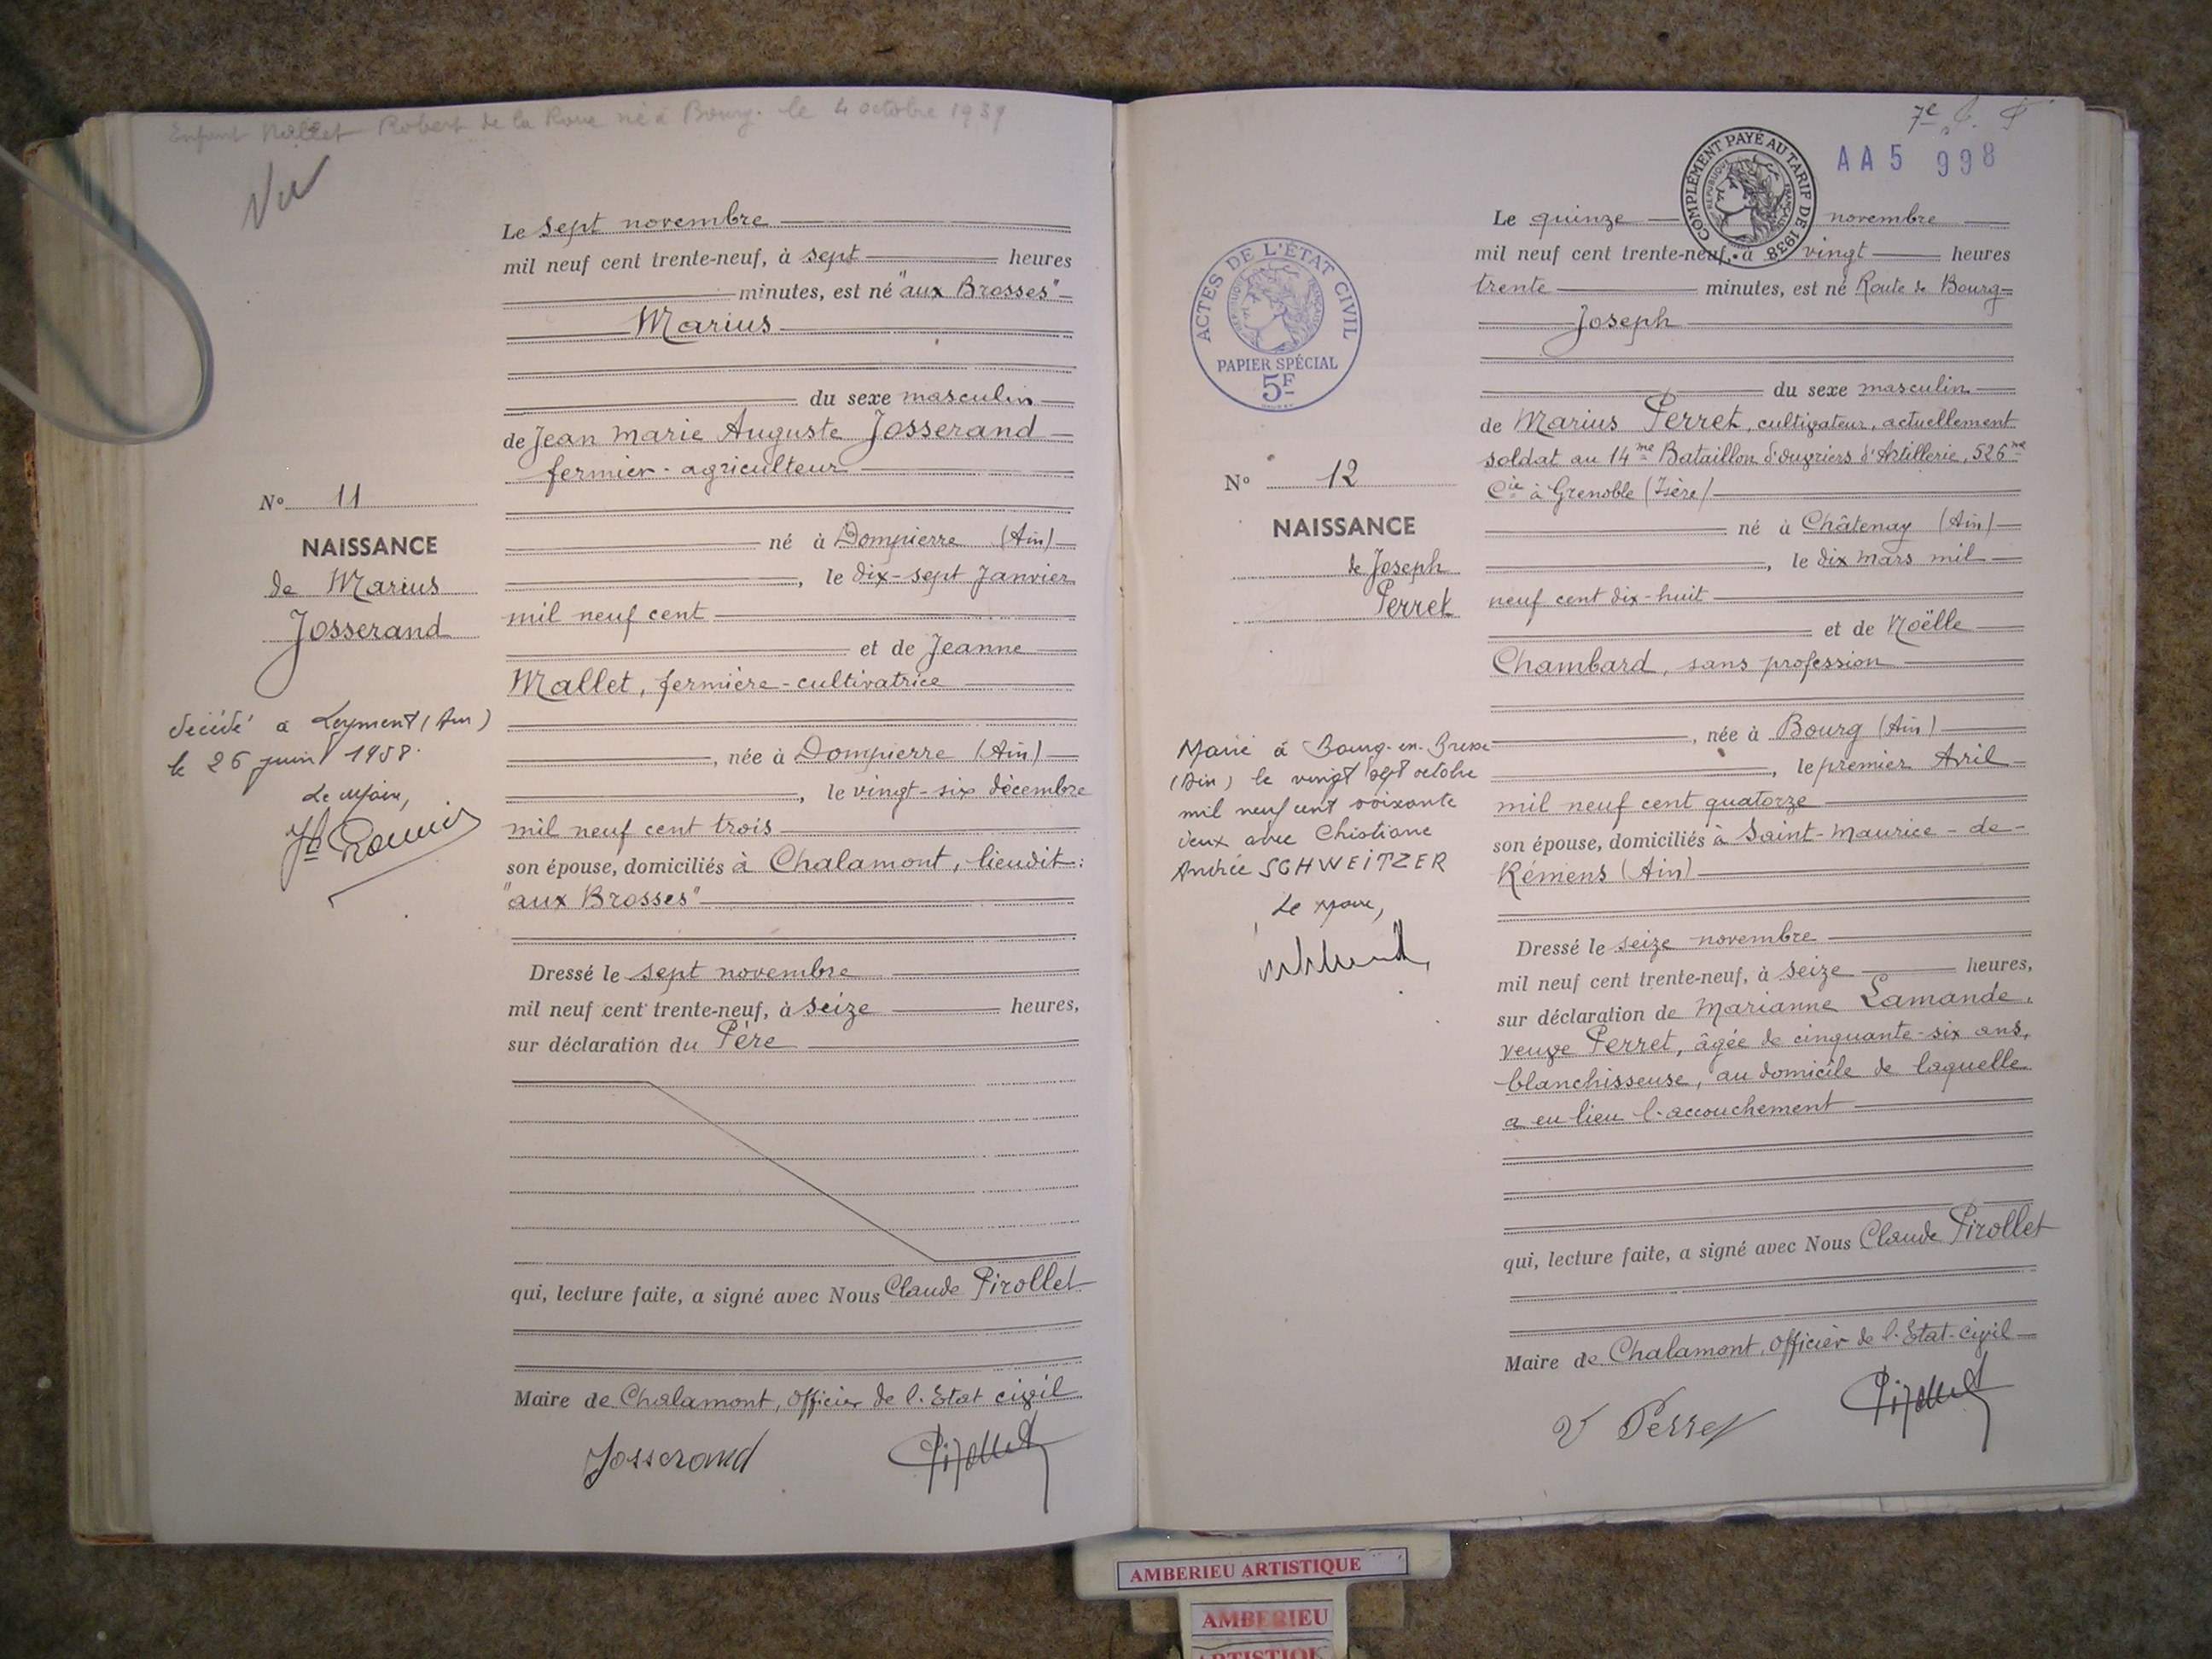 Enfant Robert de la Roue né à Bourg. le 4 octobre 1939
Vu
Le sept novembre
mil neuf cent trente-neuf, à sept heures
minutes, est né "aux Brosses"
Marius
du sexe masculin
de Jean Marie Auguste Josserand
fermier-agriculteur
né à Dompierre (Ain)
, le dix-sept Janvier
mil neuf cent
et de Jeanne
Mallet, fermière-cultivatrice
, née à Dompierre (Ain)
, le vingt-six décembre
mil neuf cent trois
son épouse, domiciliés à Chalamont, lieudit:
"aux Brosses"
Dressé le sept novembre
mil neuf cent trente-neuf, à seize heures,
sur déclaration du Père
qui, lecture faite, a signé avec Nous Claude Pirollet
Maire de Chalamont, Officier de l'Etat civil
Josserand
Nº 11
NAISSANCE
de Marius
Josserand
décédé à Leyment (Ain)
le 26 juin 1958.
Le Maire,
7e
AA5 998
COMPLÉMENT PAYÉ AU TARIF DE 1938
RÉPUBLIQUE FRANÇAISE
ACTES DE L'ÉTAT CIVIL
RÉPUBLIQUE FRANÇAISE
PAPIER SPÉCIAL
5F
Le quinze novembre
mil neuf cent trente-neuf, à vingt heures
trente minutes, est né Route de Bourg
Joseph
du sexe masculin
de Marius Perret, cultivateur, actuellement
soldat au 14me Bataillon d'ouvriers d'Artillerie, 526me
Cie à Grenoble (Isère)
né à Châtenay (Ain)
, le dix mars mil
neuf cent dix-huit
et de Noëlle
Chambard, sans profession
, née à Bourg (Ain)
, le premier Avril
mil neuf cent quatorze
son épouse, domiciliés à Saint-Maurice-de-
Rémens (Ain)
Dressé le seize novembre
mil neuf cent trente-neuf, à seize heures,
sur déclaration de Marianne Lamande,
veuve Perret, âgée de cinquante-six ans,
blanchisseuse, au domicile de laquelle
a eu lieu l'accouchement
qui, lecture faite, a signé avec Nous Claude Pirollet
Maire de Chalamont, Officier de l'Etat-civil
V Perret
Nº 12
NAISSANCE
de Joseph
Perret
Marié à Bourg-en-Bresse
(Ain) le vingt sept octobre
mil neuf cent soixante
deux avec Christiane
Andrée SCHWEITZER
Le Maire,
AMBERIEU ARTISTIQUE
AMBERIEU